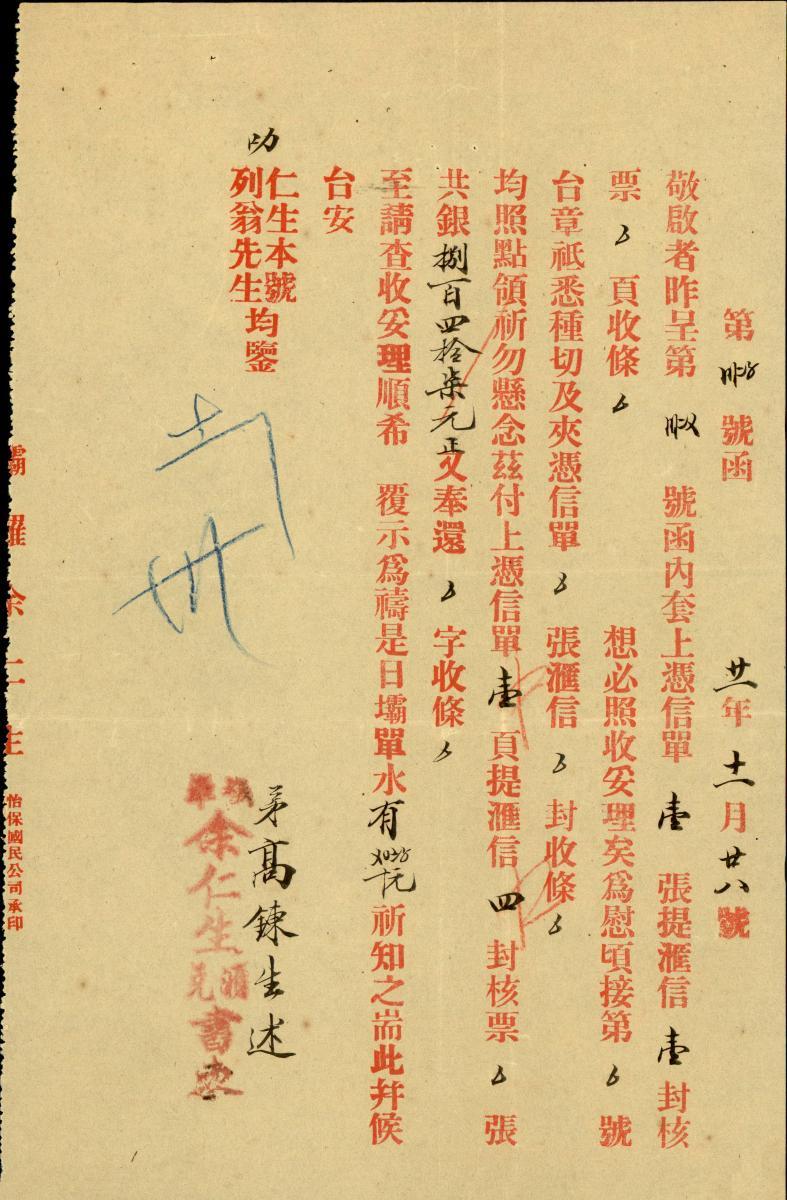 第 號函 廿一年十二月廿八號
敬啟者昨呈第 號函內套上憑信單壹張提滙信壹封核
票 頁收條 想必照收妥理矣為慰頃接第 號
台章祗悉種切及夾憑信單 張滙信 封收條
均照點領祈勿懸念茲付上憑信單壹頁提滙信四封核票 張
共銀捌百四拾柒元正又奉還 字收條
至請查收妥理順希 覆示為禱是日壩單水有 祈知之耑此并候
台安
仁生本號
列翁先生均鑒
弟高鍊生述
余仁生
滙兌
書柬
壩羅余仁生
怡保國民公司承印